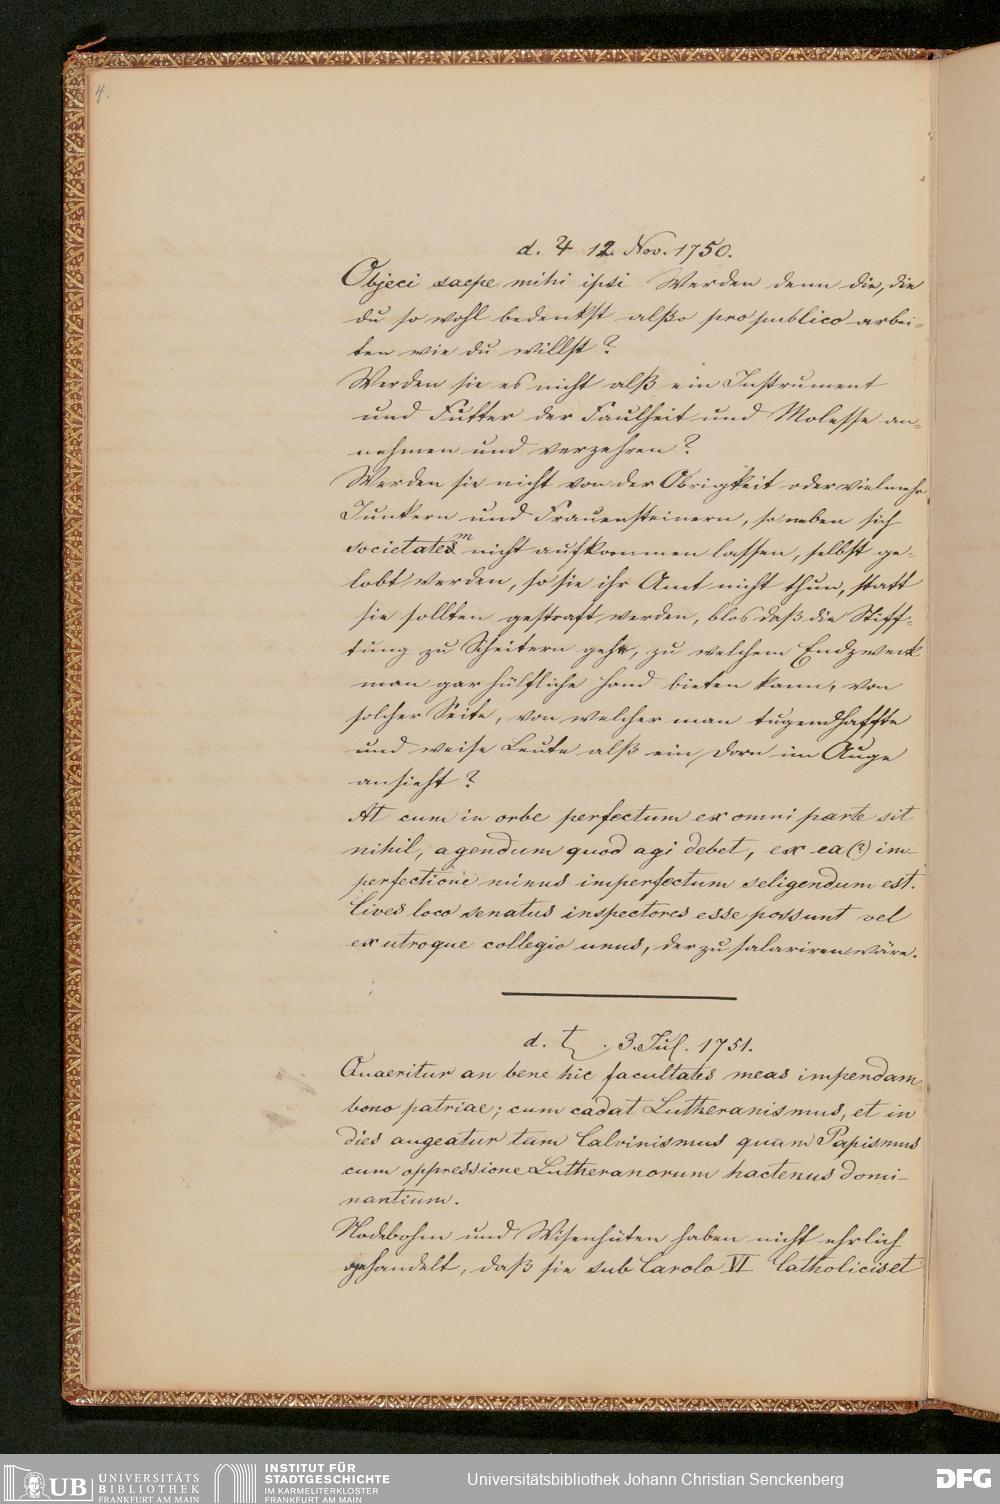 4.
d. ♃ 12. Nov. 1750.
Objeci saepe mihi ipsi Werden denn die, die
du so wohl bedenkst alßo pro publico arbei-
ten wie du willst?
Werden sie es nicht alß ein Instrument
und Futter der Faulheit und Molesse an-
nehmen und verzehren?
Werden sie nicht von der Obrigkeit oder vielmehr
Junkern und Frauensteinern, so neben sich
societatem nicht aufkommen lassen, selbst ge-
lobt werden, so sie ihr Amt nicht thun, statt
sie sollten gestraft werden, blos daß die Stiff-
tung zu Scheitern gehe, zu welchem Endzweck
man gar hülfliche Hand bieten kann, von
solcher Seite, von welcher man tugendhaffte
und weise Leute alß ein Dorn im Auge
ansieht?
At cum in orbe perfectum ex omni parte sit
nihil, agendum quod agi debet, ex ea (?) im-
perfectione minus imperfectum seligendum est.
Cives loco senatus inspectores esse possunt vel
ex utroque collegio unus, der zu salariren wäre.
d. 3. Jul. 1751.
Quaeritur an bene hic facultates meas impendam
bono patriae; cum cadat Lutheranismus, et in
dies augeatur tam Calvinismus quam Papismus
cum oppressione Lutheranorum hactenus domi-
nantium.
Nodebohm und Wisenhüten haben nicht ehrlich
gehandelt, daß sie sub Carolo VI Catholicis et
UB UNIVERSITÄTS
BIBLIOTHEK
FRANKFURT AM MAIN
INSTITUT FÜR
STADTGESCHICHTE
IM KARMELITERKLOSTER
FRANKFURT AM MAIN
Universitätsbibliothek Johann Christian Senckenberg
DFG